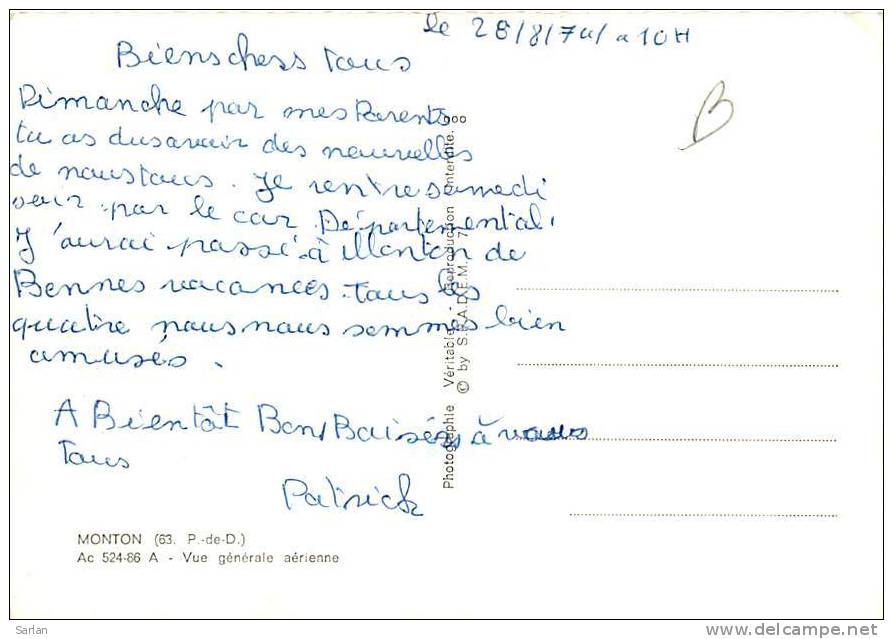 le 28/8/74/ a 10H
Bienschess tous
Dimanche par mes Parents
tu as dusavoir des nouvelles
de noustous. Je rentresamedi
soir par le car Départemental.
J'aurai passé à Monton de
Bonnes vacances. tous les
quatre nousnous sommes bien
amusés.
A Bientôt Bons Baisers à vous
Tous
Patrick
B
Photographie Véritable - Reproduction interdite.
© by S.P.A.D.E.M.
MONTON (63. P.-de-D.)
Ac 524-86 A - Vue générale aérienne
Sarlan
www.delcampe.net